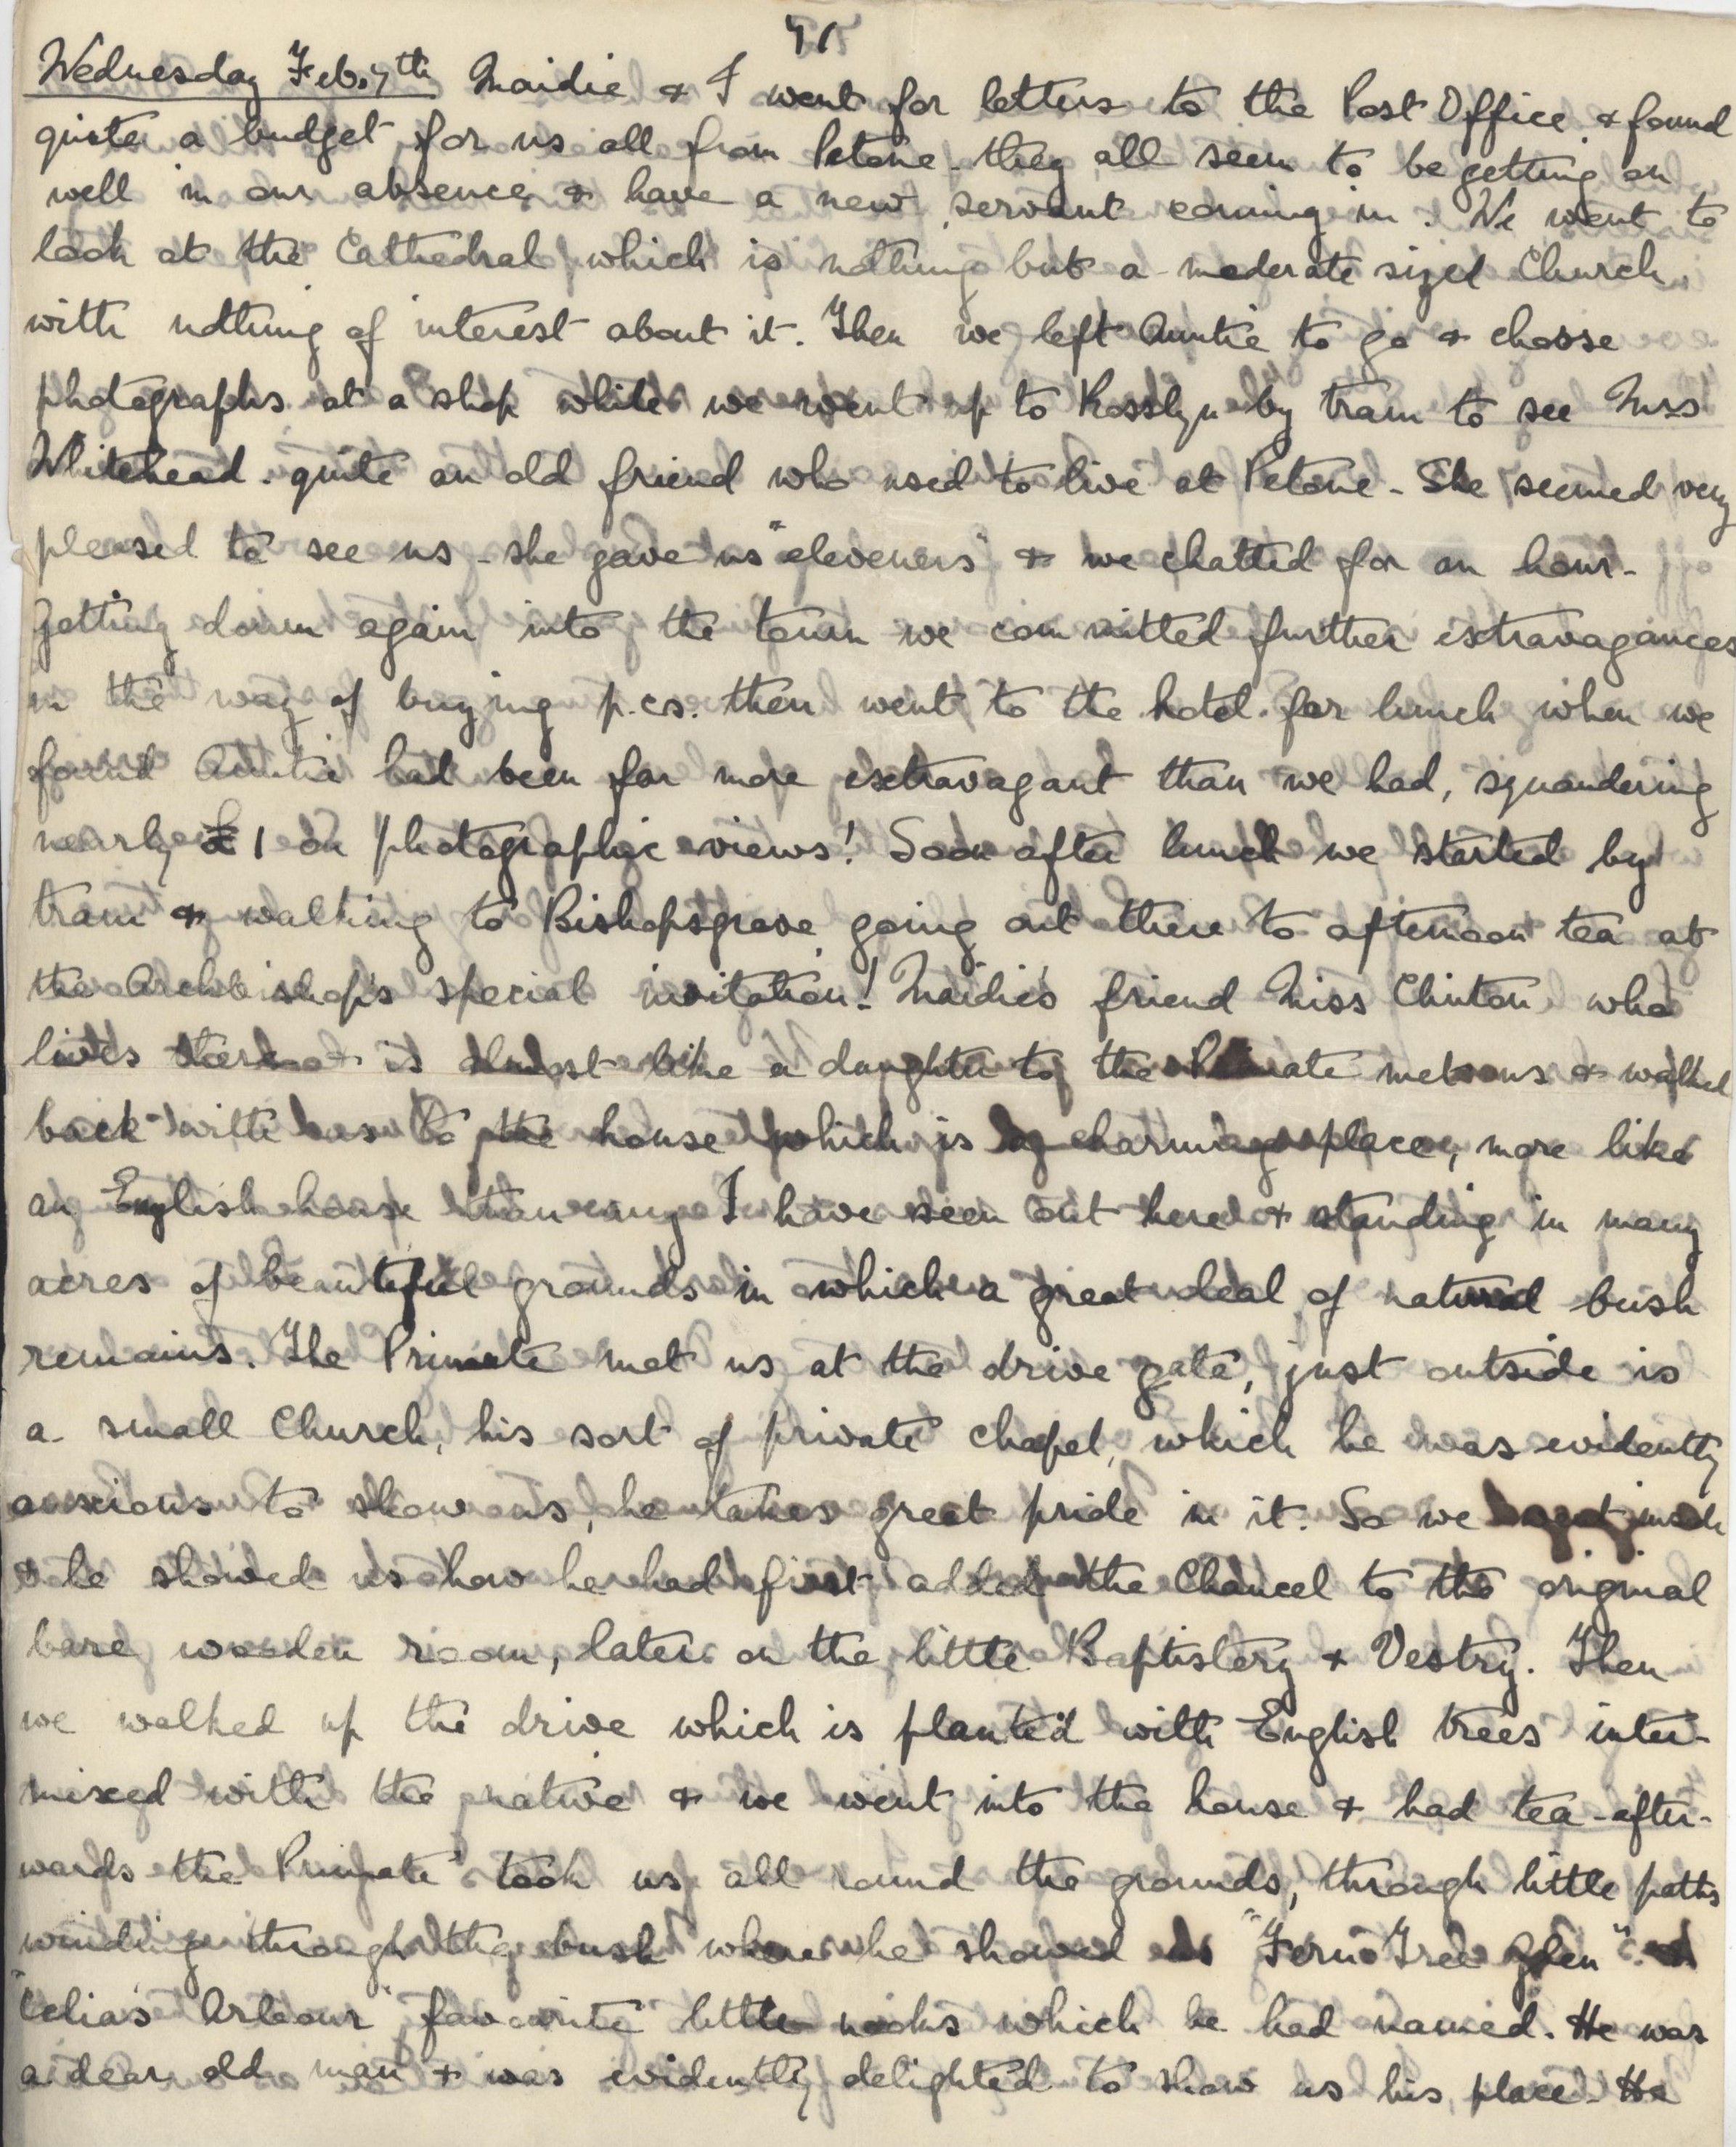 Wednesday Feb. 7th Maidie & I went for letters to the Post Office & found
quite a budget for us all from Petone - they all seem to be getting on
well in our absence & have a new servant coming in. We went to
look at the Cathedral which is nothing but a moderate sized Church
with nothing of interest about it. Then we left Auntie to go & choose
photographs at a shop while we went up to Rosslyn by tram to see Mrs
Whitehead. quite an old friend who used to live at Petone - She seemed very
pleased to see us - she gave us "eleveners" & we chatted for an hour -
Getting down again into the town we committed further extravagances
in the way of buying p.cs. then went to the hotel for lunch when we
found Auntie had been far more extravagant than we had, squandering
nearly £1 on photographic views! Soon after lunch we started by
tram & walking to Bishopsgrove going out there to afternoon tea at
the Archbishop's special invitation! Maidie's friend Miss Clinton who
lives there & is almost like a daughter to the Primate met us & walked
back with us to the house which is a charming place, more like
an English house than any I have seen out here & standing in many
acres of beautiful grounds in which a great deal of natural bush
remains. The Primate met us at the drive gate, just outside is
a small Church, his sort of private chapel, which he was evidently
anxious to show us, he takes great pride in it. So we went inside
& he showed us how he had first added the Chancel to the original
bare wooden room, later on the little Baptistery & Vestry. Then
we walked up the drive which is planted with English trees inter-
mixed with the native & we went into the house & had tea - after-
wards the Primate took us all round the grounds, through little paths
winding through the bush where he showed us "Fern Tree Glen" &
"Celia's Arbour" favourite little nooks which he had named. He was
a dear old man & was evidently delighted to show us his place. He